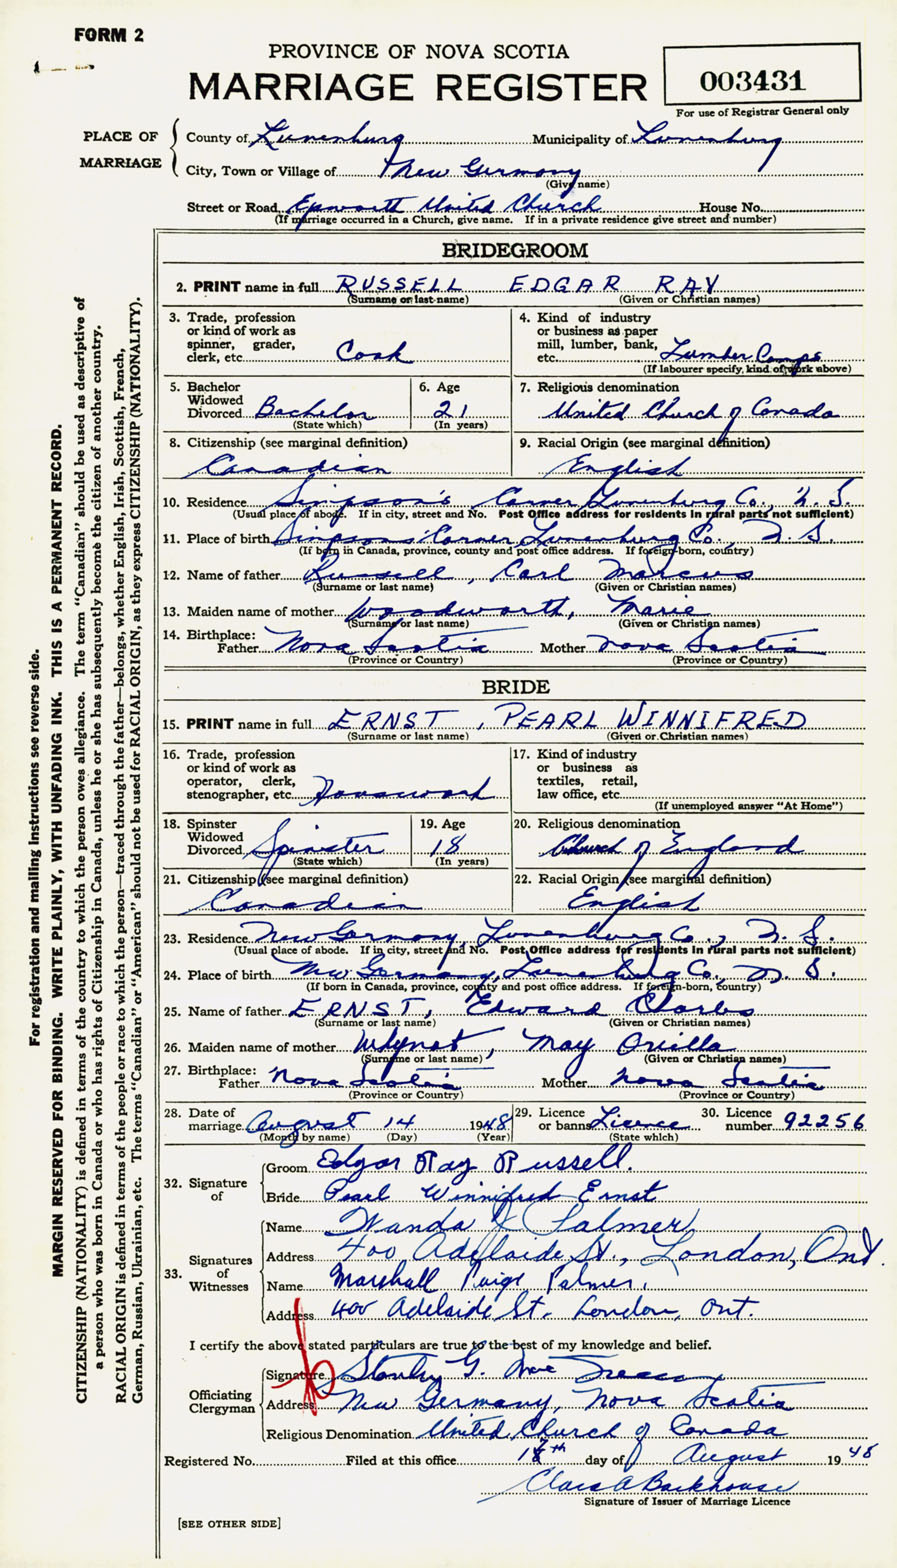 FORM 2
PROVINCE OF NOVA SCOTIA
MARRIAGE REGISTER
003431
For use of Registrar General only
PLACE OF MARRIAGE
County of Lunenburg Municipality of Lunenburg
City, Town or Village of New Germany
(Give name)
Street or Road Epworth United Church House No.
(If marriage occurred in a Church, give name. If in a private residence give street and number)
BRIDEGROOM
2. PRINT name in full RUSSELL EDGAR RAY
(Surname or last name) (Given or Christian names)
3. Trade, profession or kind of work as spinner, grader, clerk, etc. Cook
4. Kind of industry or business as paper mill, lumber, bank, etc. Lumber Camps
(If labourer specify, kind of work above)
5. Bachelor Widowed Divorced Bachelor
(State which)
6. Age 21
(In years)
7. Religious denomination
United Church of Canada
8. Citizenship (see marginal definition)
Canadian
9. Racial Origin (see marginal definition)
English
10. Residence Simpson's Corner, Lunenburg Co. N. S.
(Usual place of abode. If in city, street and No. Post Office address for residents in rural parts not sufficient)
11. Place of birth Simpsons' Corner, Lunenburg Co., N. S.
(If born in Canada, province, county and post office address. If foreign-born, country)
12. Name of father Russell, Carl Marcus
(Surname or last name) (Given or Christian names)
13. Maiden name of mother Woodworth, Marie
(Surname or last name) (Given or Christian names)
14. Birthplace: Father Nova Scotia Mother Nova Scotia
(Province or Country) (Province or Country)
BRIDE
15. PRINT name in full ERNST, PEARL WINNIFRED
(Surname or last name) (Given or Christian names)
16. Trade, profession or kind of work as operator, clerk, stenographer, etc. Housework
17. Kind of industry or business as textiles, retail, law office, etc.
(If unemployed answer "At Home")
18. Spinster Widowed Divorced Spinster
(State which)
19. Age 18
(In years)
20. Religious denomination
Church of England
21. Citizenship (see marginal definition)
Canadian
22. Racial Origin (see marginal definition)
English
23. Residence New Germany, Lunenburg Co., N. S.
(Usual place of abode. If in city, street and No. Post Office address for residents in rural parts not sufficient)
24. Place of birth New Germany, Lunenburg Co., N. S.
(If born in Canada, province, county and post office address. If foreign-born, country)
25. Name of father ERNST, Edward Charles
(Surname or last name) (Given or Christian names)
26. Maiden name of mother Whynot, May Orilla
(Surname or last name) (Given or Christian names)
27. Birthplace: Father Nova Scotia Mother Nova Scotia
(Province or Country) (Province or Country)
28. Date of marriage August 14 1948
(Month by name) (Day) (Year)
29. Licence or banns Licence
(State which)
30. Licence number 92256
32. Signature of
Groom Edgar Ray Russell.
Bride Pearl Winnifred Ernst
33. Signatures of Witnesses
Name Wanda Palmer
Address 400 Adelaide St., London, Ont.
Name Marshall Paige Palmer.
Address 400 Adelaide St. London, Ont.
I certify the above stated particulars are true to the best of my knowledge and belief.
Officiating Clergyman
Signature Stanley G.
Address New Germany, Nova Scotia
Religious Denomination United Church of Canada
Registered No. Filed at this office day of August 1948
Clara A Backhouse
Signature of Issuer of Marriage Licence
[SEE OTHER SIDE]
For registration and mailing instructions see reverse side.
MARGIN RESERVED FOR BINDING. WRITE PLAINLY, WITH UNFADING INK. THIS IS A PERMANENT RECORD.
CITIZENSHIP (NATIONALITY) is defined in terms of the country to which the person owes allegiance. The term "Canadian" should be used as descriptive of
a person who was born in Canada or who has rights of Citizenship in Canada, unless he or she has subsequently become the citizen of another country.
RACIAL ORIGIN is defined in terms of the people or race to which the person—traced through the father—belongs, whether English, Irish, Scottish, French,
German, Russian, Ukrainian, etc. The terms "Canadian" or "American" should not be used for RACIAL ORIGIN, as they express CITIZENSHIP (NATIONALITY).